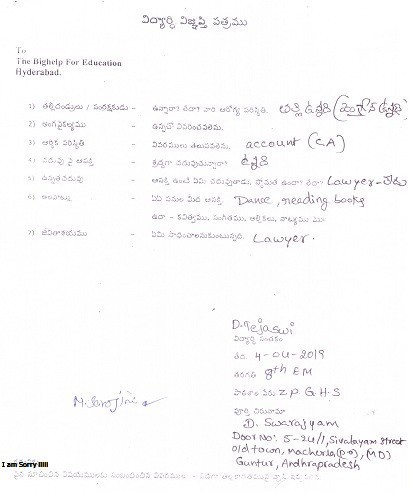 విద్యార్థి విజ్ఞప్తి పత్రము
To
The Bighelp For Education
Hyderabad.
1) తల్లిదండ్రులు / సంరక్షకుడు - ఉన్నారా? లేదా? వారి ఆరోగ్య పరిస్థితి. తల్లి ఉన్నది
2) అంగవైకల్యము - ఉన్నచో వివరించవలెను.
3) ఆర్థిక పరిస్థితి - వివరములు తెలుపవలెను. account (CA)
4) చదువు పై ఆసక్తి - శ్రద్ధగా చదువుచున్నారా? ఉన్నది
5) ఉన్నతచదువు - ఆసక్తి ఉంటే ఏమి చదువుతారు, స్తోమత ఉందా? లేదా? Lawyer - లేదు
6) అలవాట్లు - ఏఏ పనుల మీద ఆసక్తి. Dance, reeding books
ఉదా - కవిత్వము, సంగీతము, ఆర్టికల్సు, నాట్యము
7) జీవితాశయము - ఏమి సాధించాలనుకుంటున్నది. Lawyer.
D. Tejaswi
విద్యార్థి సంతకం
తేది 4-04-2019
తరగతి 8th EM
పాఠశాల పేరు Z P G H S
పూర్తి చిరునామా
D. Swarajyam
Door No: 5-24/1, Sivalayam street
old town, macherla (PO), (MD)
Guntur, Andhrapradesh
M. Sarojini
I am Sorry !!!!!